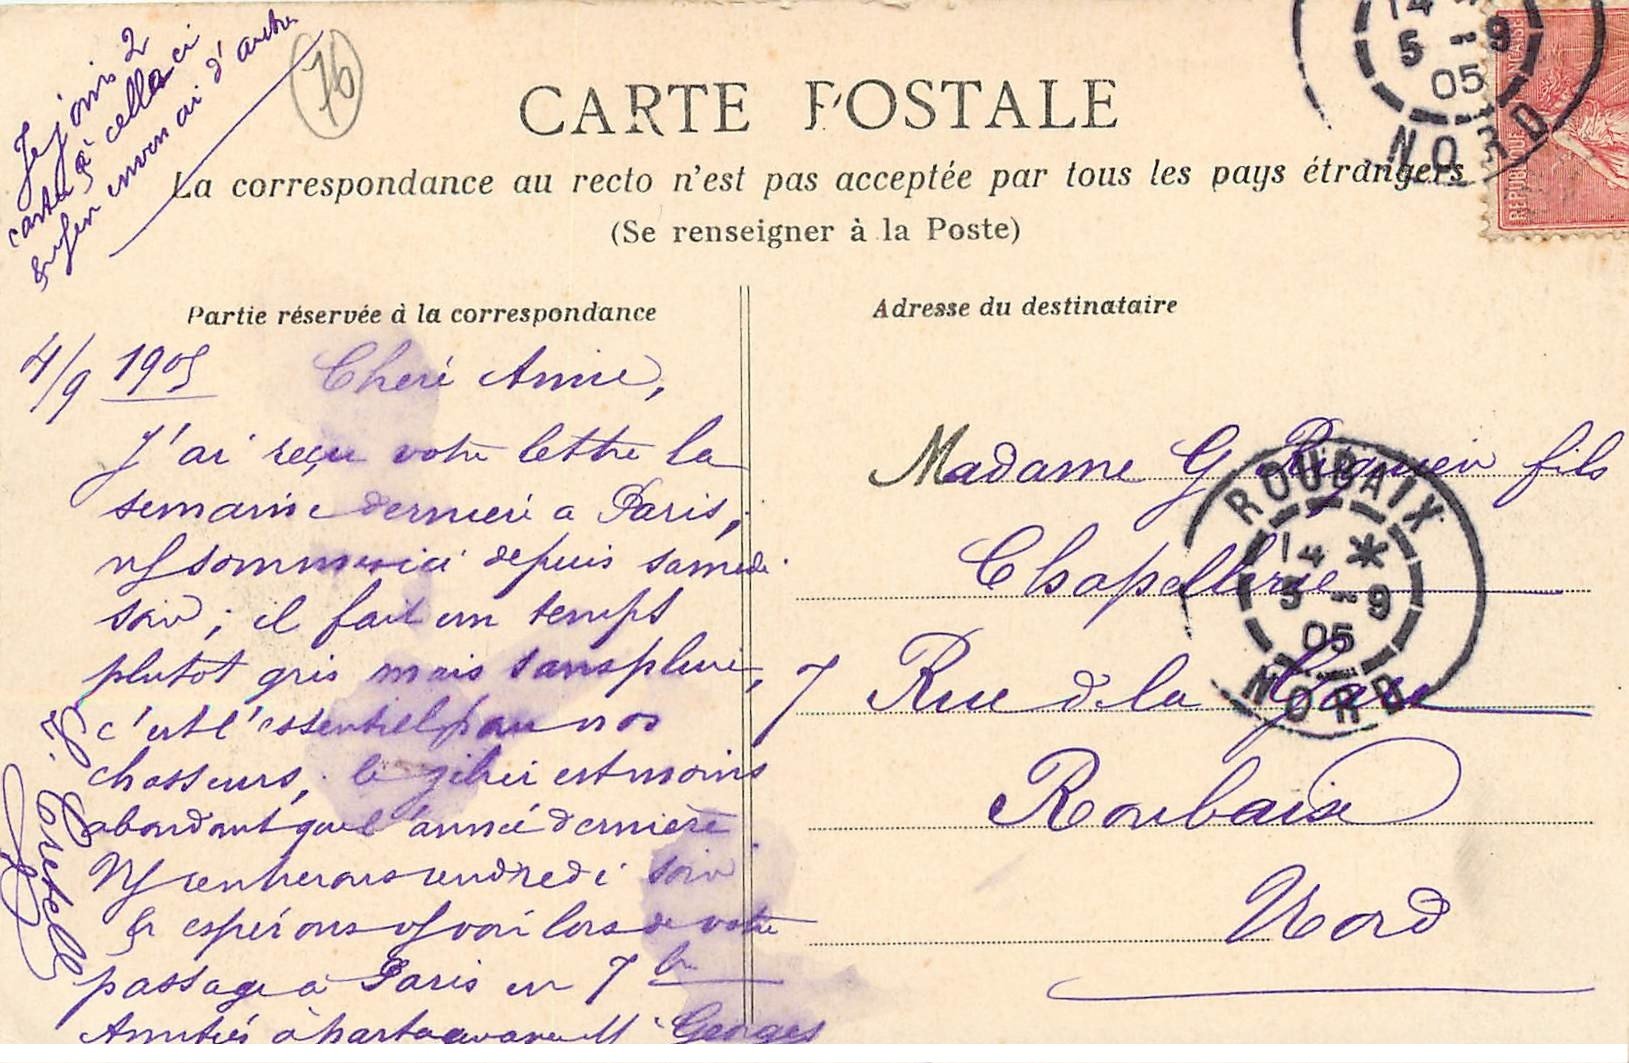 Je joins 2
cartes à celle ci
en ai d'autre
76
CARTE POSTALE
La correspondance au recto n'est pas acceptée par tous les pays étrangers
(Se renseigner à la Poste)
14
5 - 9
05
NORD
REPUBLIQUE
Partie réservée à la correspondance
4/9 1905 Cheré Amie,
J'ai reçu votre lettre la
semaine derniere a Paris,
ns sommes ici depuis samedi
soir ; il fait un temps
plutot gris mais sans pluie,
c'est l'essentiel pour nos
chasseurs, le gibier est moins
abondant que l'année derniere
Ns rentrerons vendredi soir
& espérons vs voir lors de votre
passage a Paris en 7bre
Amitiés à partager avec Mr Georges
Adresse du destinataire
Madame G fils
Chapellerie
7 Rue de la Gare
Roubaix
Nord
ROUBAIX
14 *
5 - 9
05
NORD